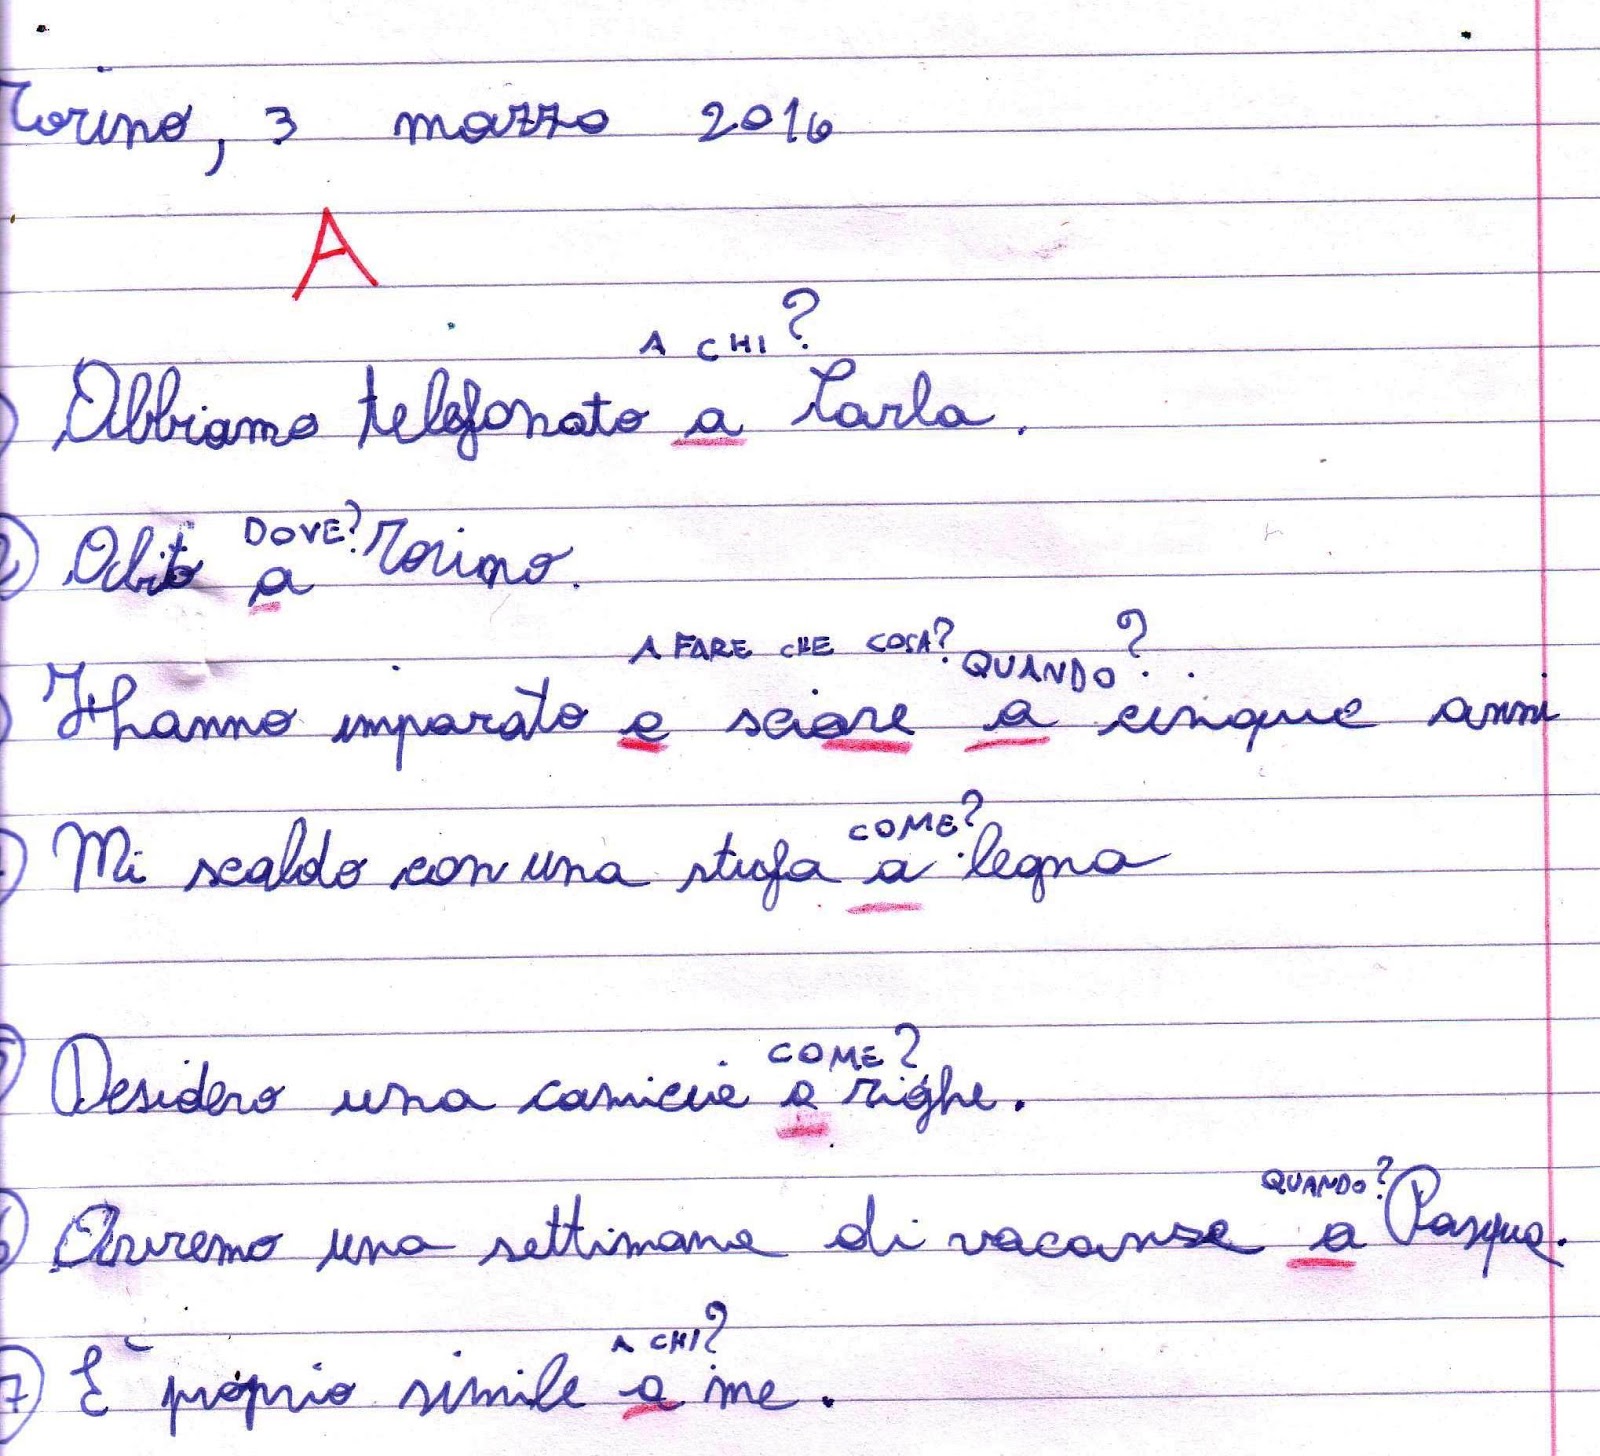 Torino, 3 marzo 2016
A
A CHI?
Abbiamo telefonato a Carla.
DOVE?
2 Abito a Torino.
A FARE CHE COSA? QUANDO?
Hanno imparato a sciare a cinque anni
COME?
Mi scaldo con una stufa a legna
COME?
5 Desidero una camicia a righe.
QUANDO?
6 Avremo una settimana di vacanze a Pasqua.
A CHI?
7 È proprio simile a me.